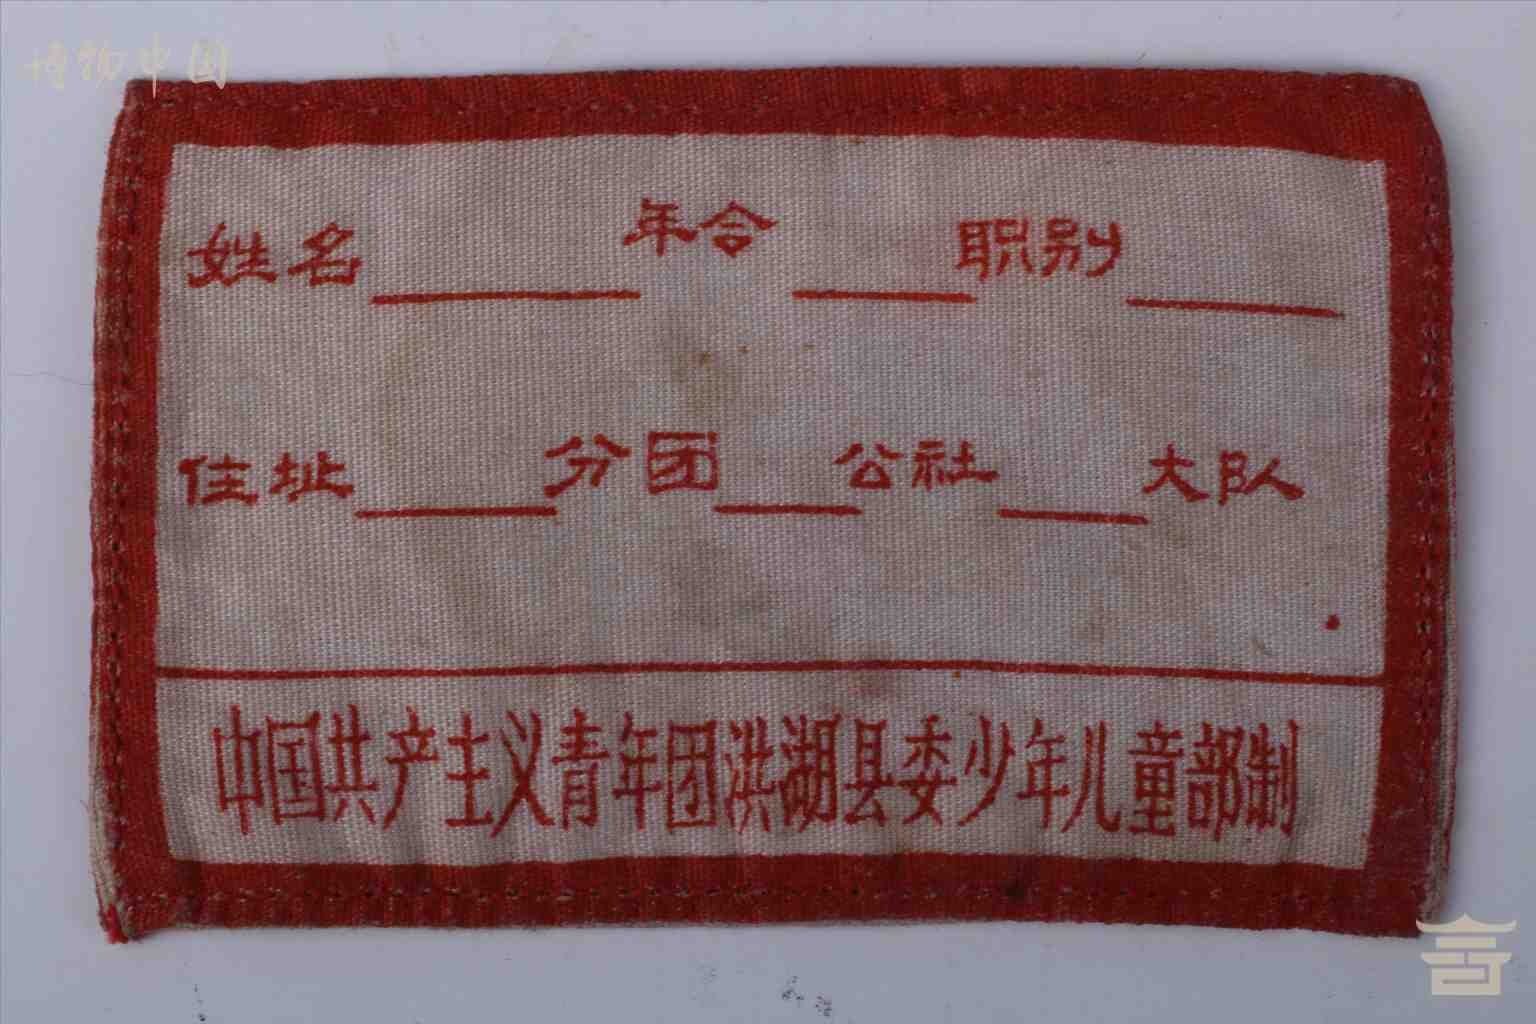 博物中国
姓名____年令____职别____
住址____分团____公社____大队
中国共产主义青年团洪湖县委少年儿童部制